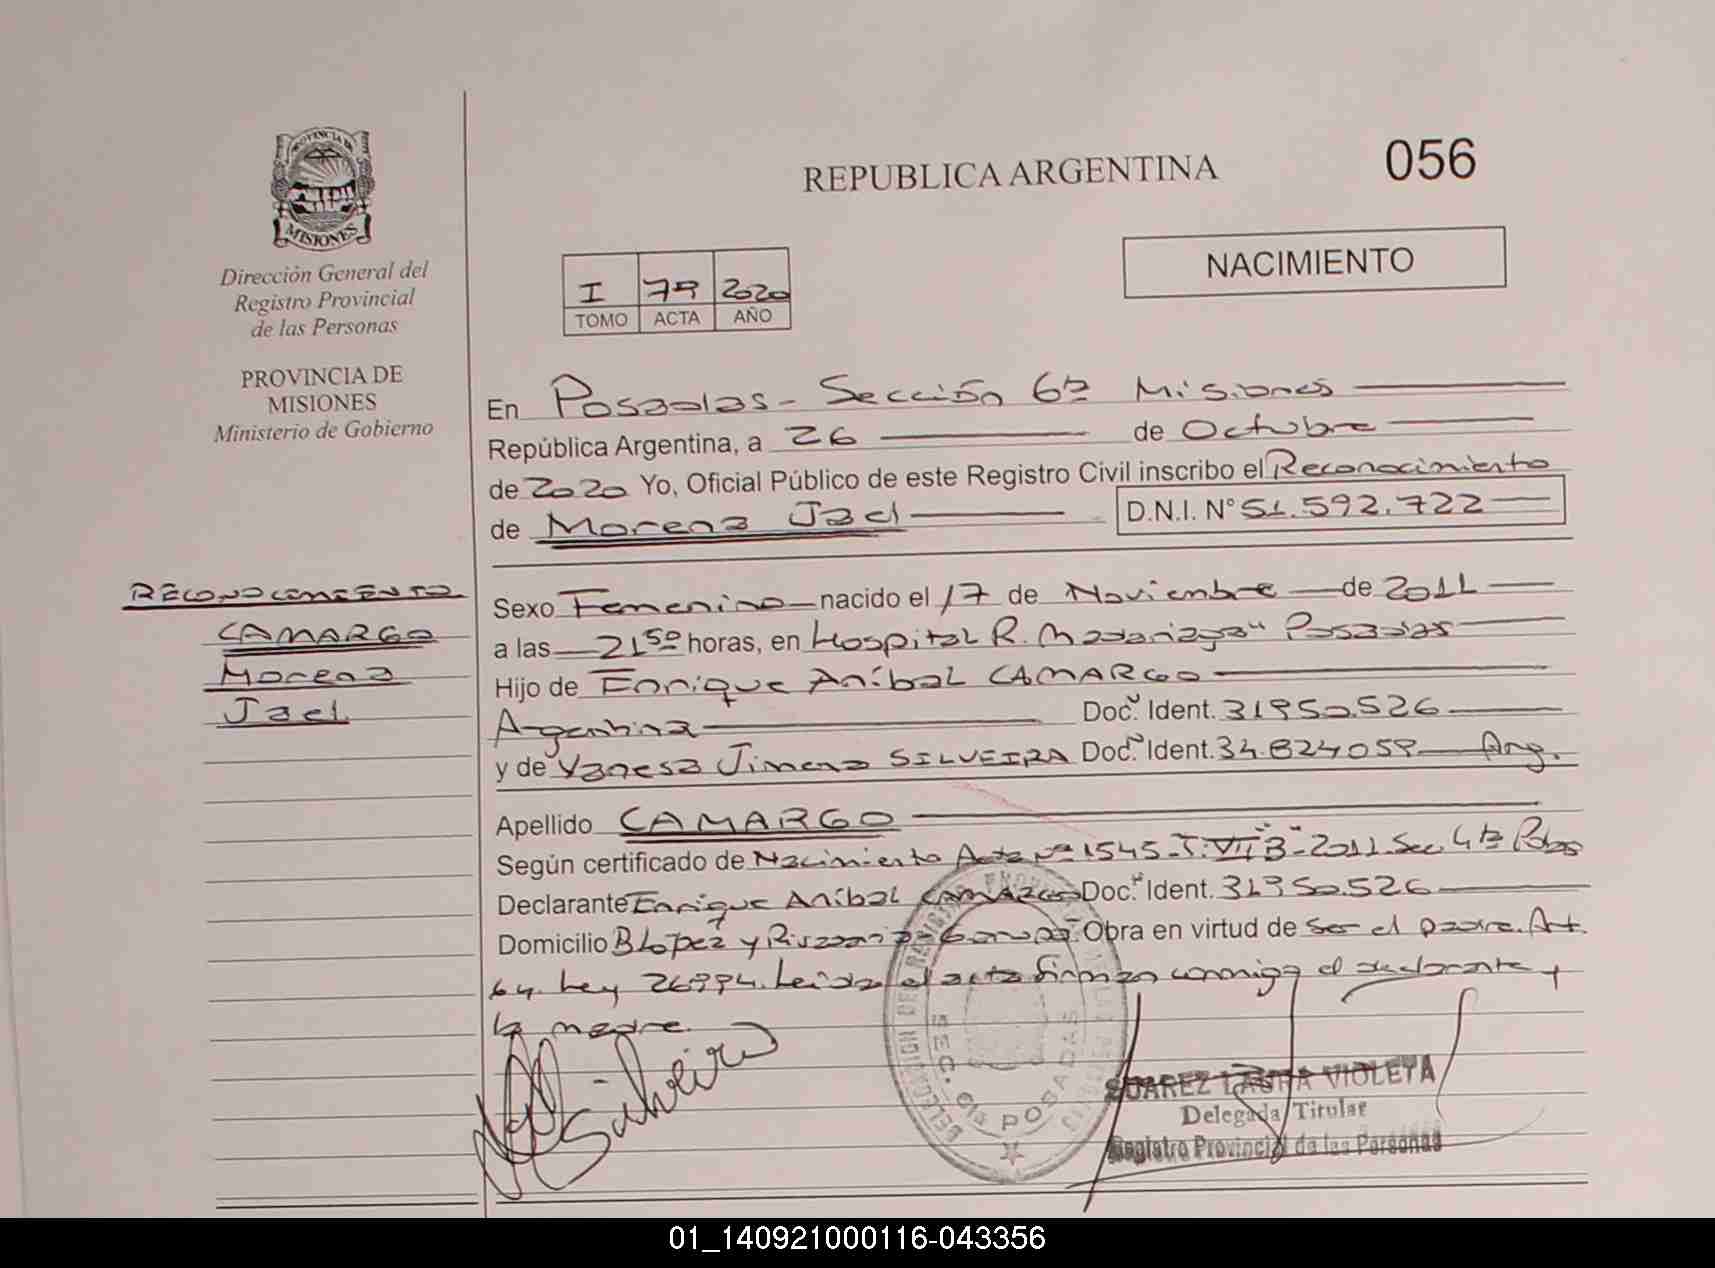 PROVINCIA DE
MISIONES
Dirección General del
Registro Provincial
de las Personas
PROVINCIA DE
MISIONES
Ministerio de Gobierno
REPUBLICA ARGENTINA
056
NACIMIENTO
I 79 2020
TOMO ACTA AÑO
En Posadas - Sección 6ta Misiones
República Argentina, a 26 de Octubre
de 2020 Yo, Oficial Público de este Registro Civil inscribo el Reconocimiento
de Morena Jael D.N.I. N° 51.592.722
RECONOCIMIENTO
CAMARGO
Morena
Jael
Sexo Femenino nacido el 17 de Noviembre de 2011
a las 21 50 horas, en Hospital R. Madariaga" Posadas
Hijo de Enrique Aníbal CAMARGO
Argentina Doc. Ident. 31950.526
y de Vanesa Jimena SILVEIRA Doc. Ident. 34.824059 Arg.
Apellido CAMARGO
Según certificado de Nacimiento Acta N° 1545-T:VII"B"-2011 Sec. 4ta
Declarante Enrique Aníbal CAMARGO Doc. Ident. 31950.526
Domicilio B López y Obra en virtud de ser el padre. Art.
64. Ley 26994. Leída el acta firman conmigo el declarante y
la madre.
Silveira
DELEGACION DEL REGISTRO
SEC. 6ta POSADAS
SUAREZ LAURA VIOLETA
Delegada Titular
Registro Provincial de las Personas
01_140921000116-043356